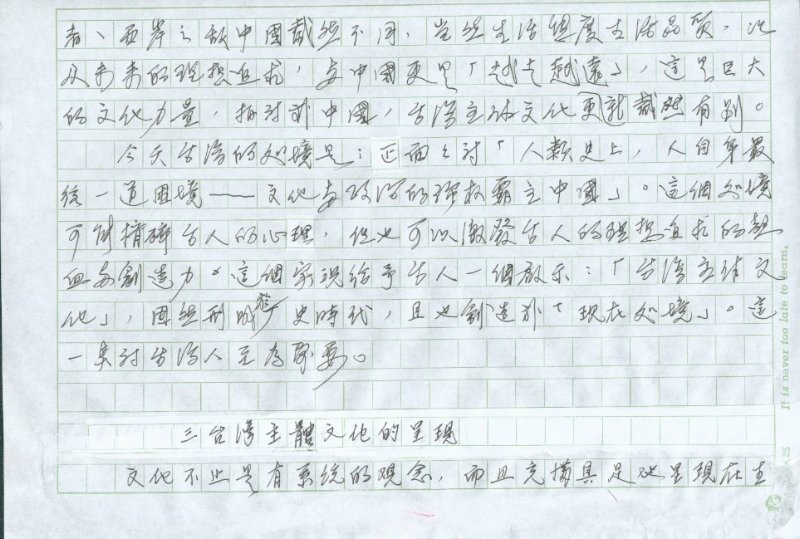 者、西岸之敵中國截然不同,當然生活態度生活品質,以
及未來的理想追求,與中國更是「越走越遠」,這是巨大
的文化力量,相對於中國,台灣主體文化更就截然有別。
今天台灣的處境是:正面之對「人類史上,人自身最
後一道困境——文化與政治的強權霸主中國」。這個處境
可能擠碎台人的心理,但也可以激發台人的理想追求的熱
血與創造力。這個實況給予台人一個啟示:「台灣主体文
化」,固然形成於歷史時代,且也創造於「現在處境」。這
一奌對台灣人至為緊要。
三台灣主體文化的呈現
文化不止是有系統的觀念,而且充摸具足地呈現在生
It is never too late to learn.
25